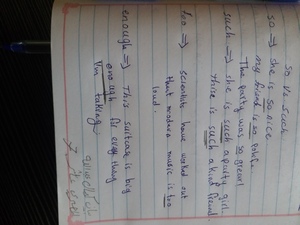 so Vs Such
so => she is so nice
my friend is so polite.
The party was so great!
such => she is such a pretty girl
there is such a kind friend
too => scientists have worked out
that modern music is too
loud.
enough => This suitcase is big
enough for every thing
I'm taking